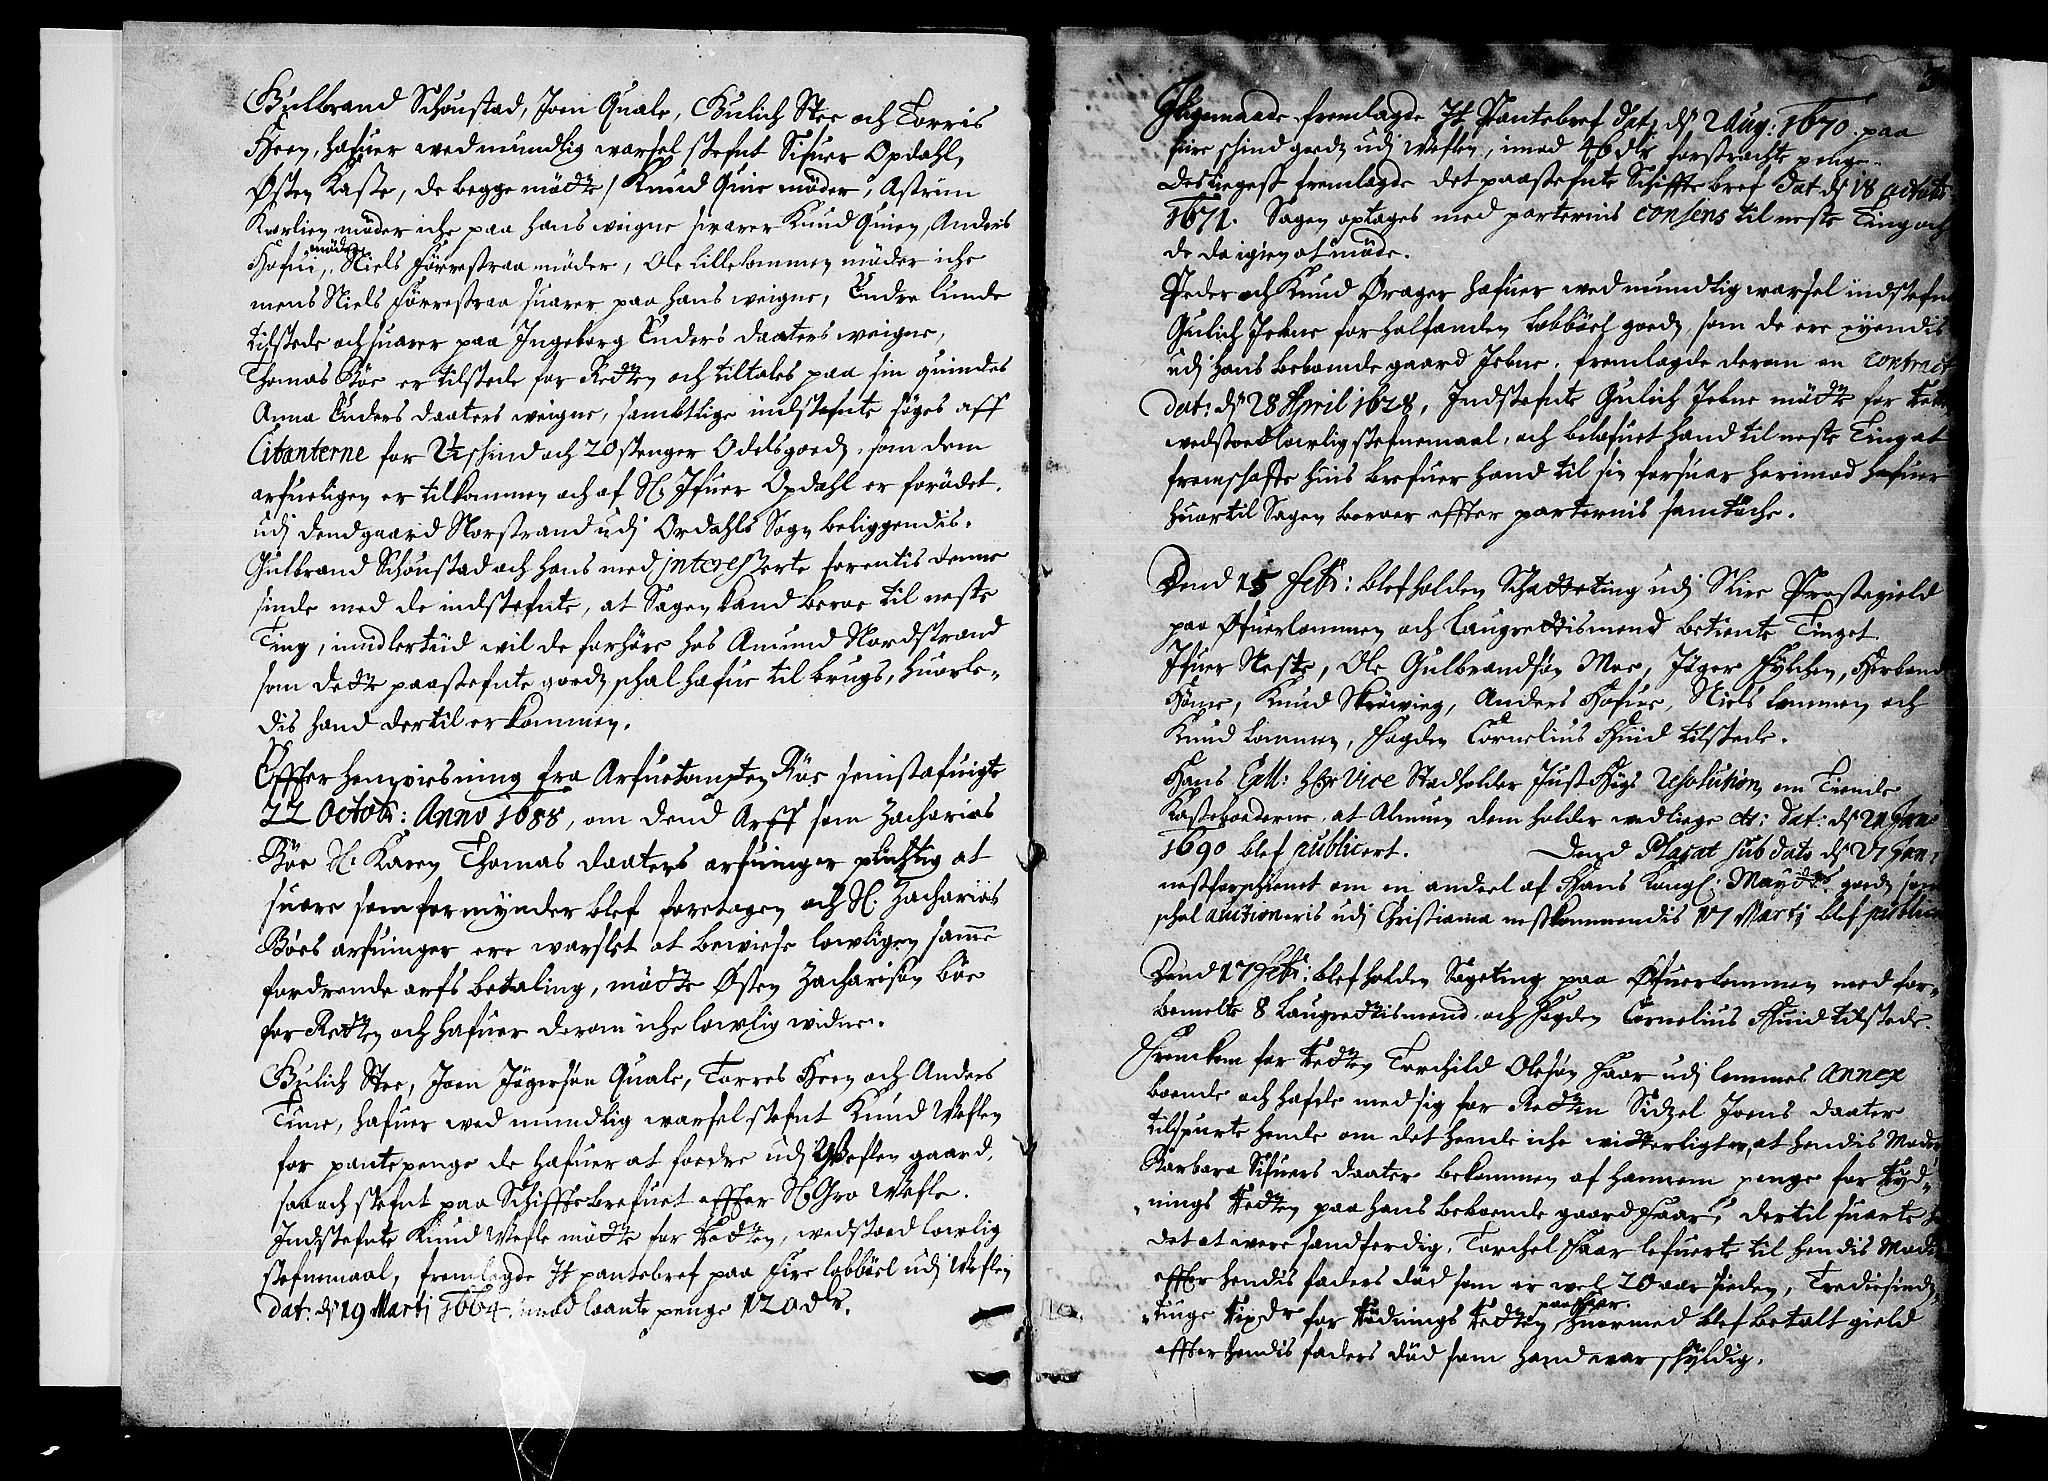 Gulbrand Schoustad, Joen Quale, Gulich Stee och Torris
Heen, hafuer wed mundlig warsel stefnt Sifuer Opdahl,
Østen Kasse, de begge mødte / Knud Quie møder, Astrim
Kerlien møder iche paa hans weigne swarer Knud Quien, Anders
Hofui, møder, Niels Førrestraa møder, Ole Lillelommen møder iche
mens Niels Førrestraa suarer paa hans weigne, Endre Lunde
tilstede och suarer paa Ingeborg Enders daaters weigne,
Thomas Bøe er tilstede for Retten och tiltales paa sin quindes
Anna Enders daaters weigne, sambtlige indstefnte søges aff
Citanterne for 1/2 schind och 20 stenger Odelsgoedz, som dem
arfueligen er tilkommen och af Sl. Ifuer Opdahl er forødet,
udj dend gaard Norstrand udj Ordahls Sogn beliggendis.
Gulbrand Schoustad och hans med interesserte forentis denne
sinde med de indstefnte, at Sagen kand beroe til neste
Ting, imidlertiid wil de forhøre hos Amund Nordstrand
som dette paastefnte goedz schal hafue til brugs, huorle-
dis hand dertil er kommen.
Effter henwiesning fra Arfuetompten Bøe senistafuigte
22 Octobr: Anno 1688, om dend Arff som Zacharias
Bøe Sl. Karen Thomas daaters arfuinger plichtig at
suare som formynder blef foretagen och Sl. Zacharias
Bøes arfuinger ere warslet at bewiese lowligen samme
fordrende arfs betaling, mødte Østen Zacharisøn Bøe
for Retten och hafuer derom iche lowlig widne.
Gulich Stee, Joen Jøgersøn Quale, Torres Heen och Anders
Tune, hafuer wed mundlig warsel stefnt Knud Weflen
for pantepenge de hafuer at foedre udj Weflen gaard,
saa och stefnt paa Schifftebrefuet effter Sl. Gro Wefle.
Indstefnte Knud Wefle mødte for Retten, wedstoed lowlig
stefnemaal, fremlagde It pantebref paa fire løbbøel udj Weflen
dat: dj 19 Martj 1664, imod laante penge 120 dlr.
Ligemaade fremlagde It Pantebref dat: dj 2 Aug: 1670 paa
fire schind goedz udj Weflen, imod 46 dlr forstrachte penge.
Desligest fremlagde det paastefnte Schiffte bref dat dj 18 Octobr
1671. Sagen optages med parternis consens til neste Ting och
de da igien at møde.
Peder och Knud Drager hafuer wed mundlig warsel indstefnt
Gulich Jebne for halfanden løbbøel goedz, som de ere eyendis
udj hans beboende gaard Jebne, fremlagde derom en contract
dat: dj 28 April 1628, Indstefnte Gulich Jebne mødte for Retten
wedstoed lowlig stefnemaal, och belafuet hand til neste Ting at
fremschaffe huis brefuer hand til sin forsuar herimod hafuer
huortil Sagen beroer effter parternis samtøche.
Dend 15 Febr: blef holden Schatteting udj Slire Prestegield
paa Øfuerlommen och Laugrettismend betiente Tinget
Ifuer Neste, Ole Gulbrandsøn Moe, Jøger Fylchen, Herbrand
Høme, Knud Skrøwieg, Anders Hofue, Niels Lommen och
Knud Lommen, Fogden Cornelius Huid tilstede.
Hans Exll: Hr Vice Stadholder Just Høgs resolution om Tiende
Kasteboederne, at Almuen dem holder wedliege etc: dat: dj 21 Jan:
1690 blef publicert. Dend Placat sub dato dj 27 Jan:
nestforschienet om en andeel af Hans Kongl: Mayts. goedz som
schal auctioneris udj Christiania nestkommendis 17 Martj blef publicert
Dend 17 Febr: blef holden Sageting paa Øfuerlommen med for-
bemelte 8 Laugrettismend, och Fogden Cornelius Huid tilstede.
Fremkom for Retten Torchild Olesøn Faar udj Lommes Annex
boende och hafde med sig for Retten Sidzel Joens daater
tilspurte hende om det hende iche witterligt er, at hendis Moder
Barbara Sifuers daater bekommen af hannem penge for Ryd-
nings Retten paa hans beboende gaard Faar, dertil suarte
det at were sandferdig. Torchel Faar lefuerte til hendis Moder
effter hendis faders død som er wel 20 aar siden, Trediesinds-
tiuge Rixdr for Rødnings Retten paa Faar, huormed blef betalt gield
effter hendis faders død som hand war schyldig.